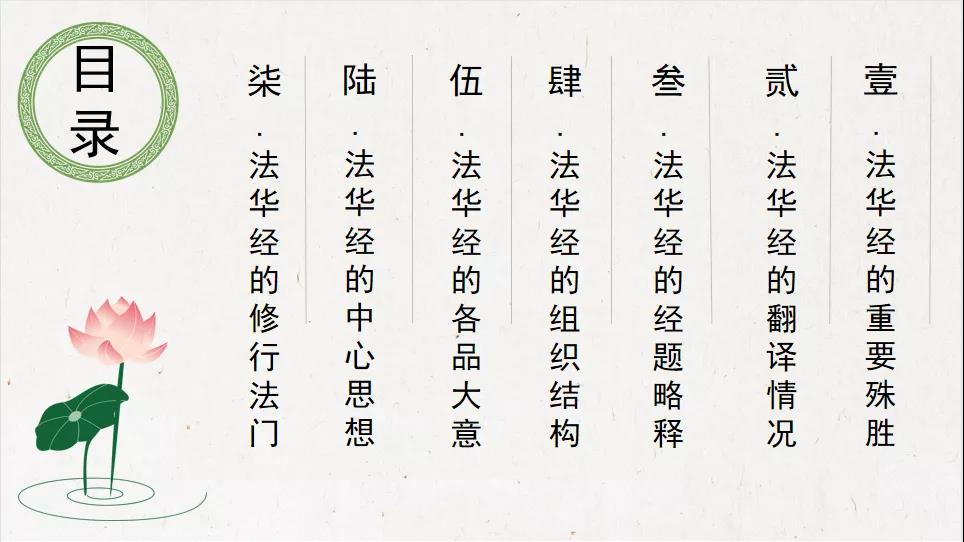 目录
壹.法华经的重要殊胜
贰.法华经的翻译情况
叁.法华经的经题略释
肆.法华经的组织结构
伍.法华经的各品大意
陆.法华经的中心思想
柒.法华经的修行法门